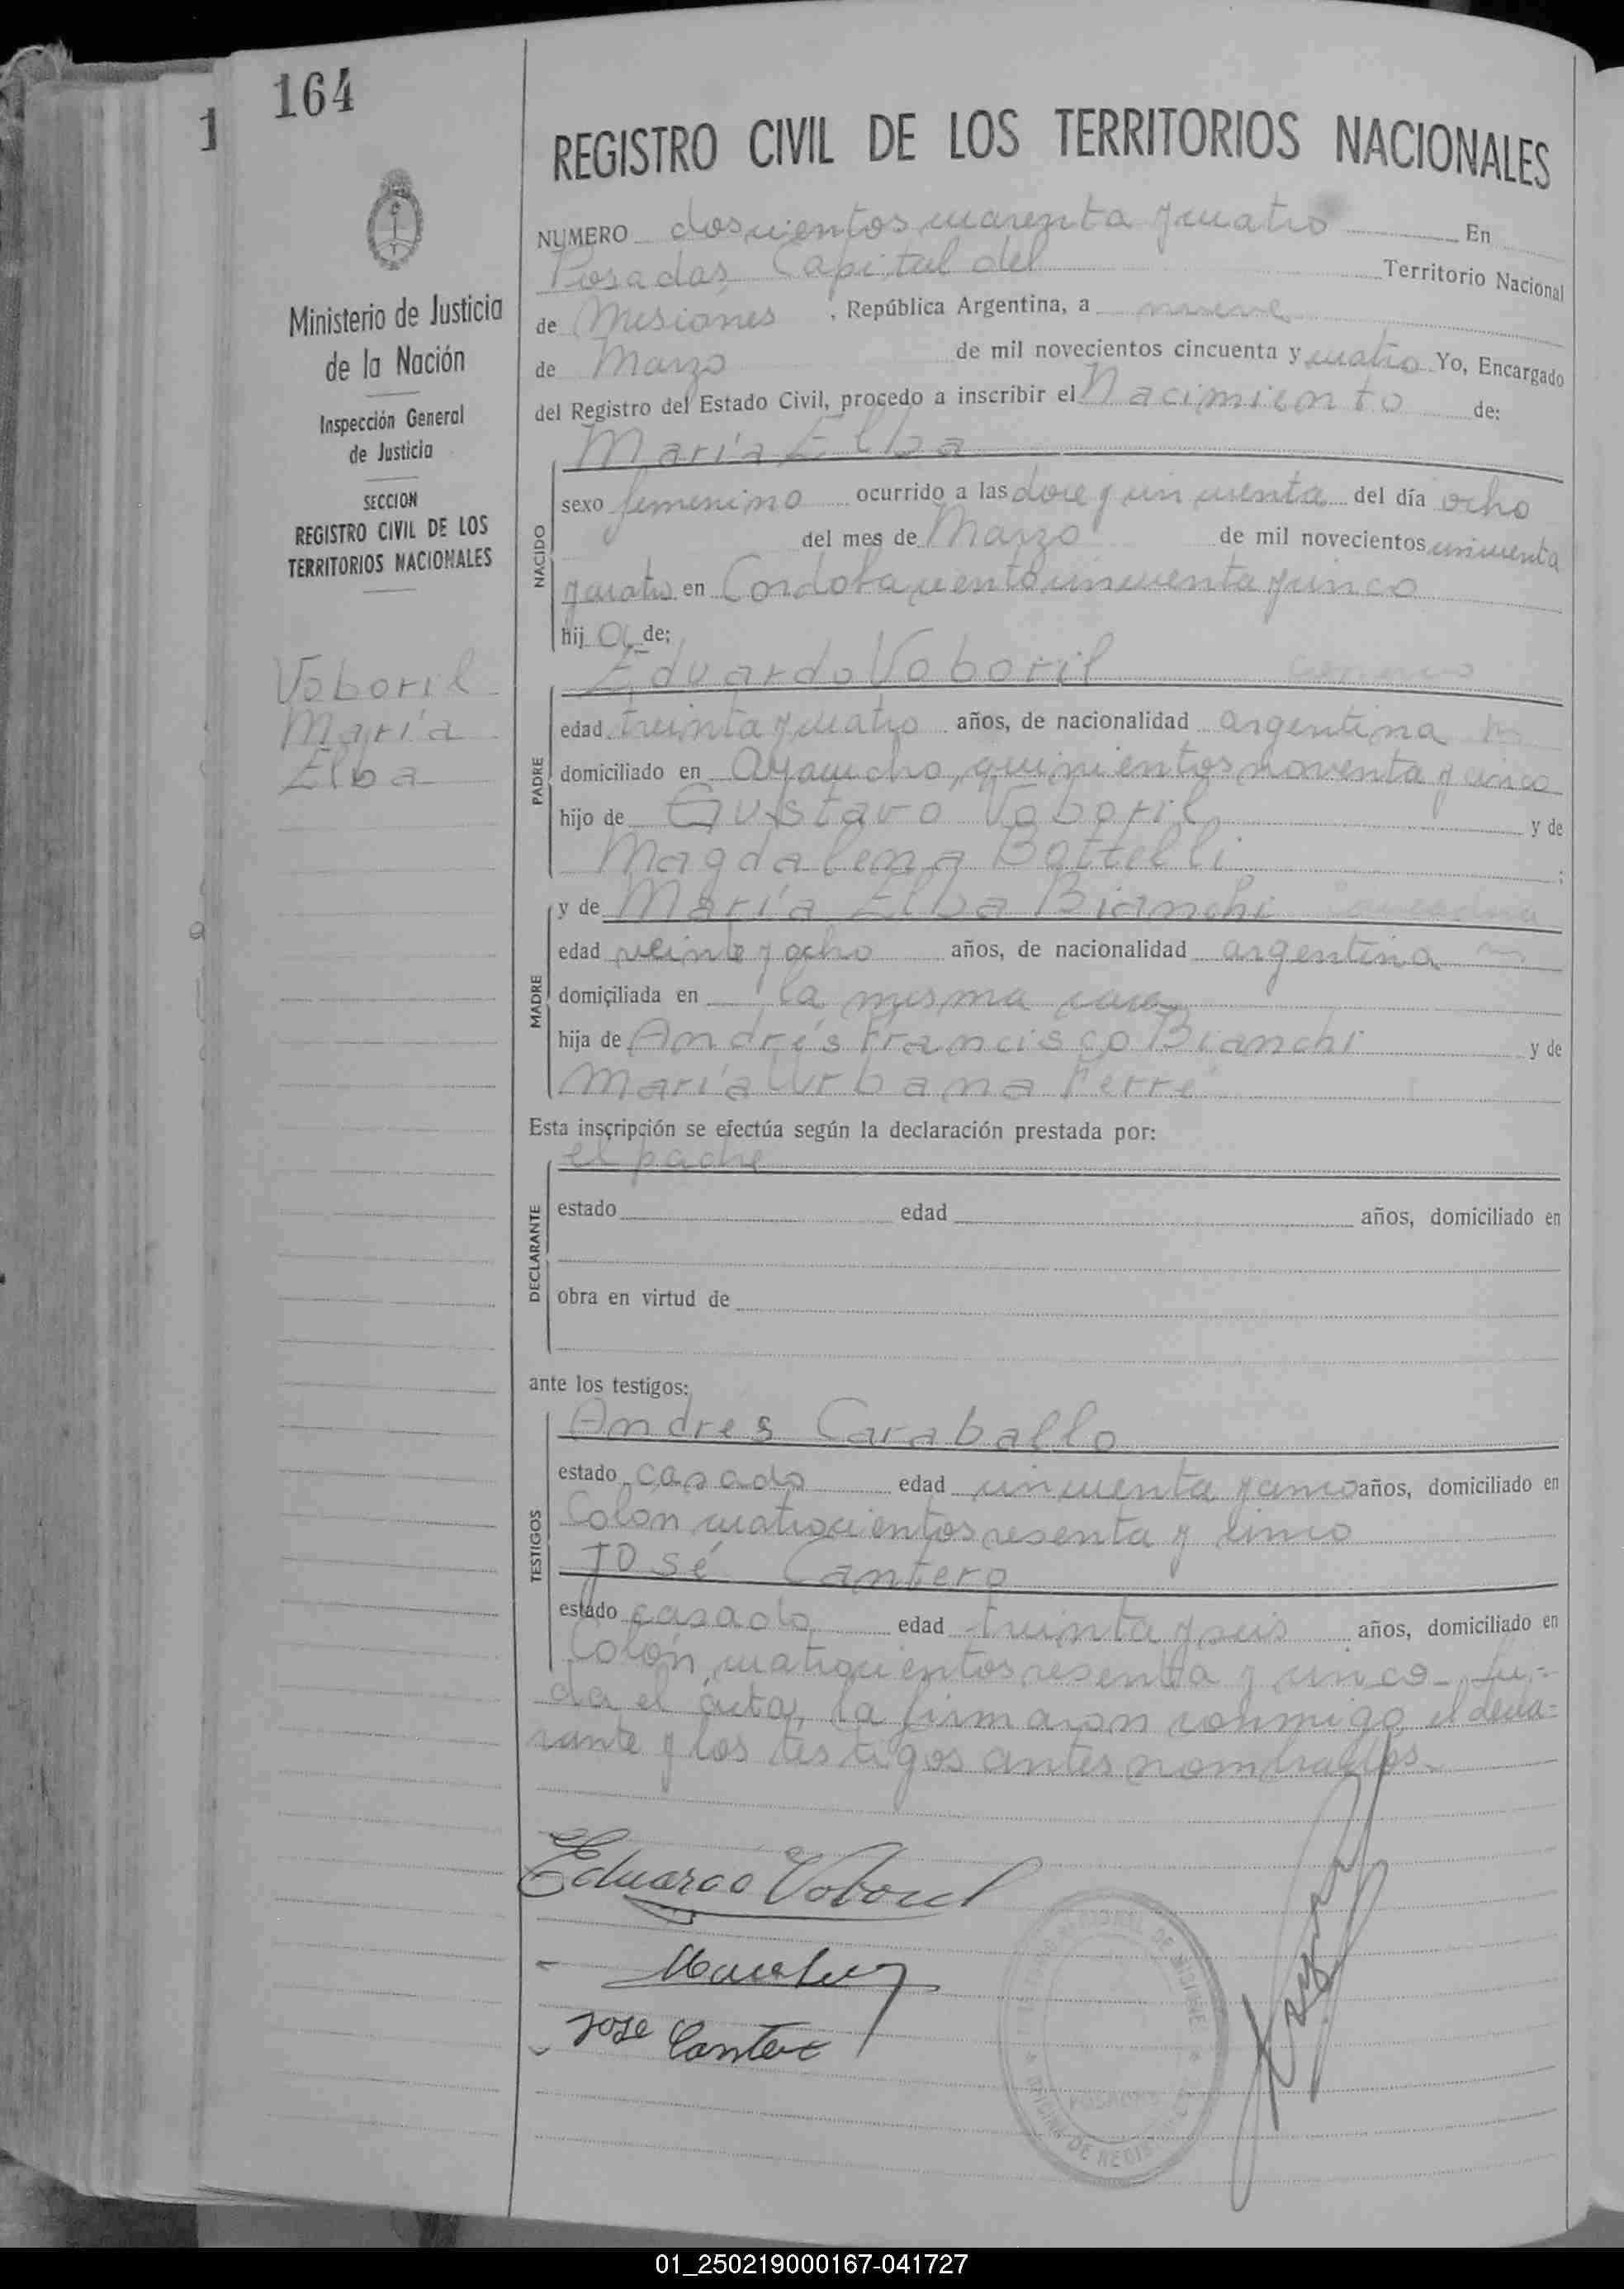 164
1
REGISTRO CIVIL DE LOS TERRITORIOS NACIONALES
NUMERO doscientos cuarenta y cuatro En
Posadas, Capital del Territorio Nacional
de Misiones, República Argentina, a nueve
de Marzo de mil novecientos cincuenta y cuatro Yo, Encargado
del Registro del Estado Civil, procedo a inscribir el Nacimiento de:
María Elba
NACIDO
sexo femenino ocurrido a las doce y cincuenta del día ocho
del mes de Marzo de mil novecientos cincuenta
y cuatro en Cordoba ciento cincuenta y cinco
hija de:
Eduardo Voboril
PADRE
edad treinta y cuatro años, de nacionalidad argentina
domiciliado en Ayacucho, quinientos noventa y cinco
hijo de Gustavo Voboril y de
Magdalena Bottelli;
MADRE
y de María Elba Bianchi
edad veinte y ocho años, de nacionalidad argentina
domiciliada en la misma casa
hija de Andrés Francisco Bianchi y de
María Urbana Ferré
Esta inscripción se efectúa según la declaración prestada por:
el padre
DECLARANTE
estado edad años, domiciliado en
obra en virtud de
ante los testigos:
Andres Caraballo
TESTIGOS
estado casado edad cincuenta y cinco años, domiciliado en
Colón cuatrocientos sesenta y cinco
José Cantero
estado casado edad treinta y seis años, domiciliado en
Colón, cuatrocientos sesenta y cinco.- Lei=
da el acta, la firmaron conmigo el decla=
rante y los testigos antes nombrados.-
Eduardo Voboril
Jose Cantero
Ministerio de Justicia
de la Nación
Inspección General
de Justicia
SECCION
REGISTRO CIVIL DE LOS
TERRITORIOS NACIONALES
Voboril
María
Elba
POSADAS
01_250219000167-041727